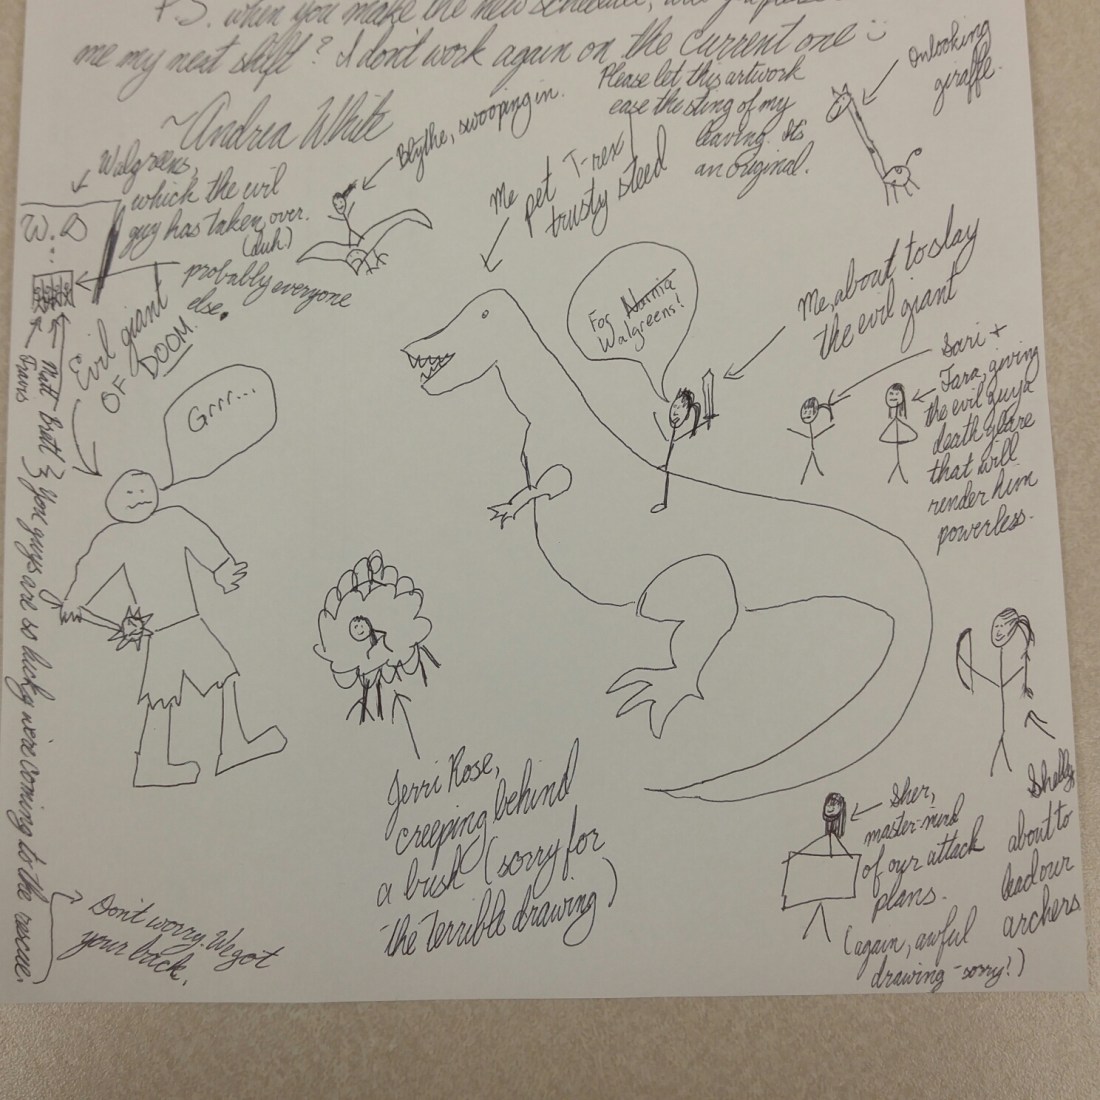 P.S. when you make the new schedule, will you please
me my next shift? I don't work again on the current one :)
~Andrea White
Please let this artwork
ease the sting of my
leaving. It's
an Original.
Onlooking
giraffe.
Blythe, swooping in.
Walgreens,
which the evil
guy has taken over.
(duh)
probably everyone
else.
W.B
Me
pet T-rex
trusty steed
For Narnia
Walgreens!
Me, about to slay
the evil giant
Evil giant
OF DOOM.
Grrr...
Sari +
Tara, giving
the evil guy a
death glare
that will
render him
powerless.
Travis
Matt Brat } you guys are so lucky we're coming to the rescue.
Jerri Rose,
creeping behind
a bush (sorry for
the terrible drawing)
Sher,
master-mind
of our attack
plans.
(again, awful
drawing - sorry!)
Shelly
about to
lead our
archers
Don't worry. We got
your back.